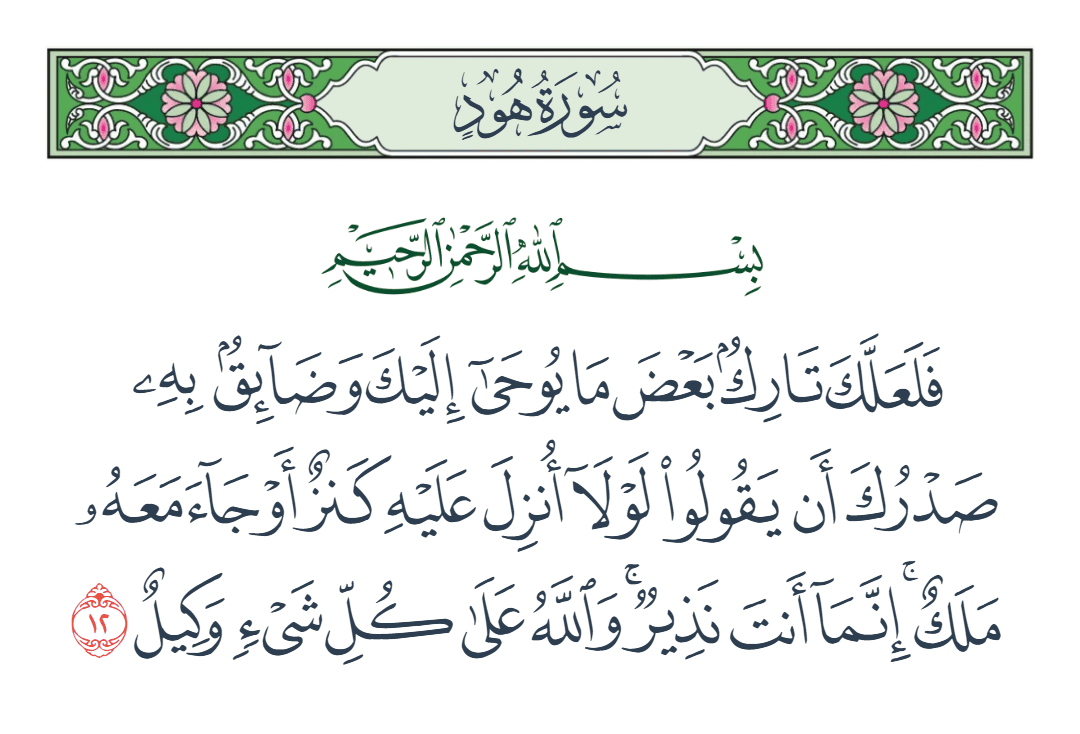 سُورَةُ هُودٍ
بِسْمِ ٱللَّهِ ٱلرَّحْمَٰنِ ٱلرَّحِيمِ
فَلَعَلَّكَ تَارِكٌۢ بَعْضَ مَا يُوحَىٰٓ إِلَيْكَ وَضَآئِقٌۢ بِهِۦ
صَدْرُكَ أَن يَقُولُوا۟ لَوْلَآ أُنزِلَ عَلَيْهِ كَنزٌ أَوْ جَآءَ مَعَهُۥ
مَلَكٌ ۚ إِنَّمَآ أَنتَ نَذِيرٌ ۚ وَٱللَّهُ عَلَىٰ كُلِّ شَىْءٍ وَكِيلٌ ١٢